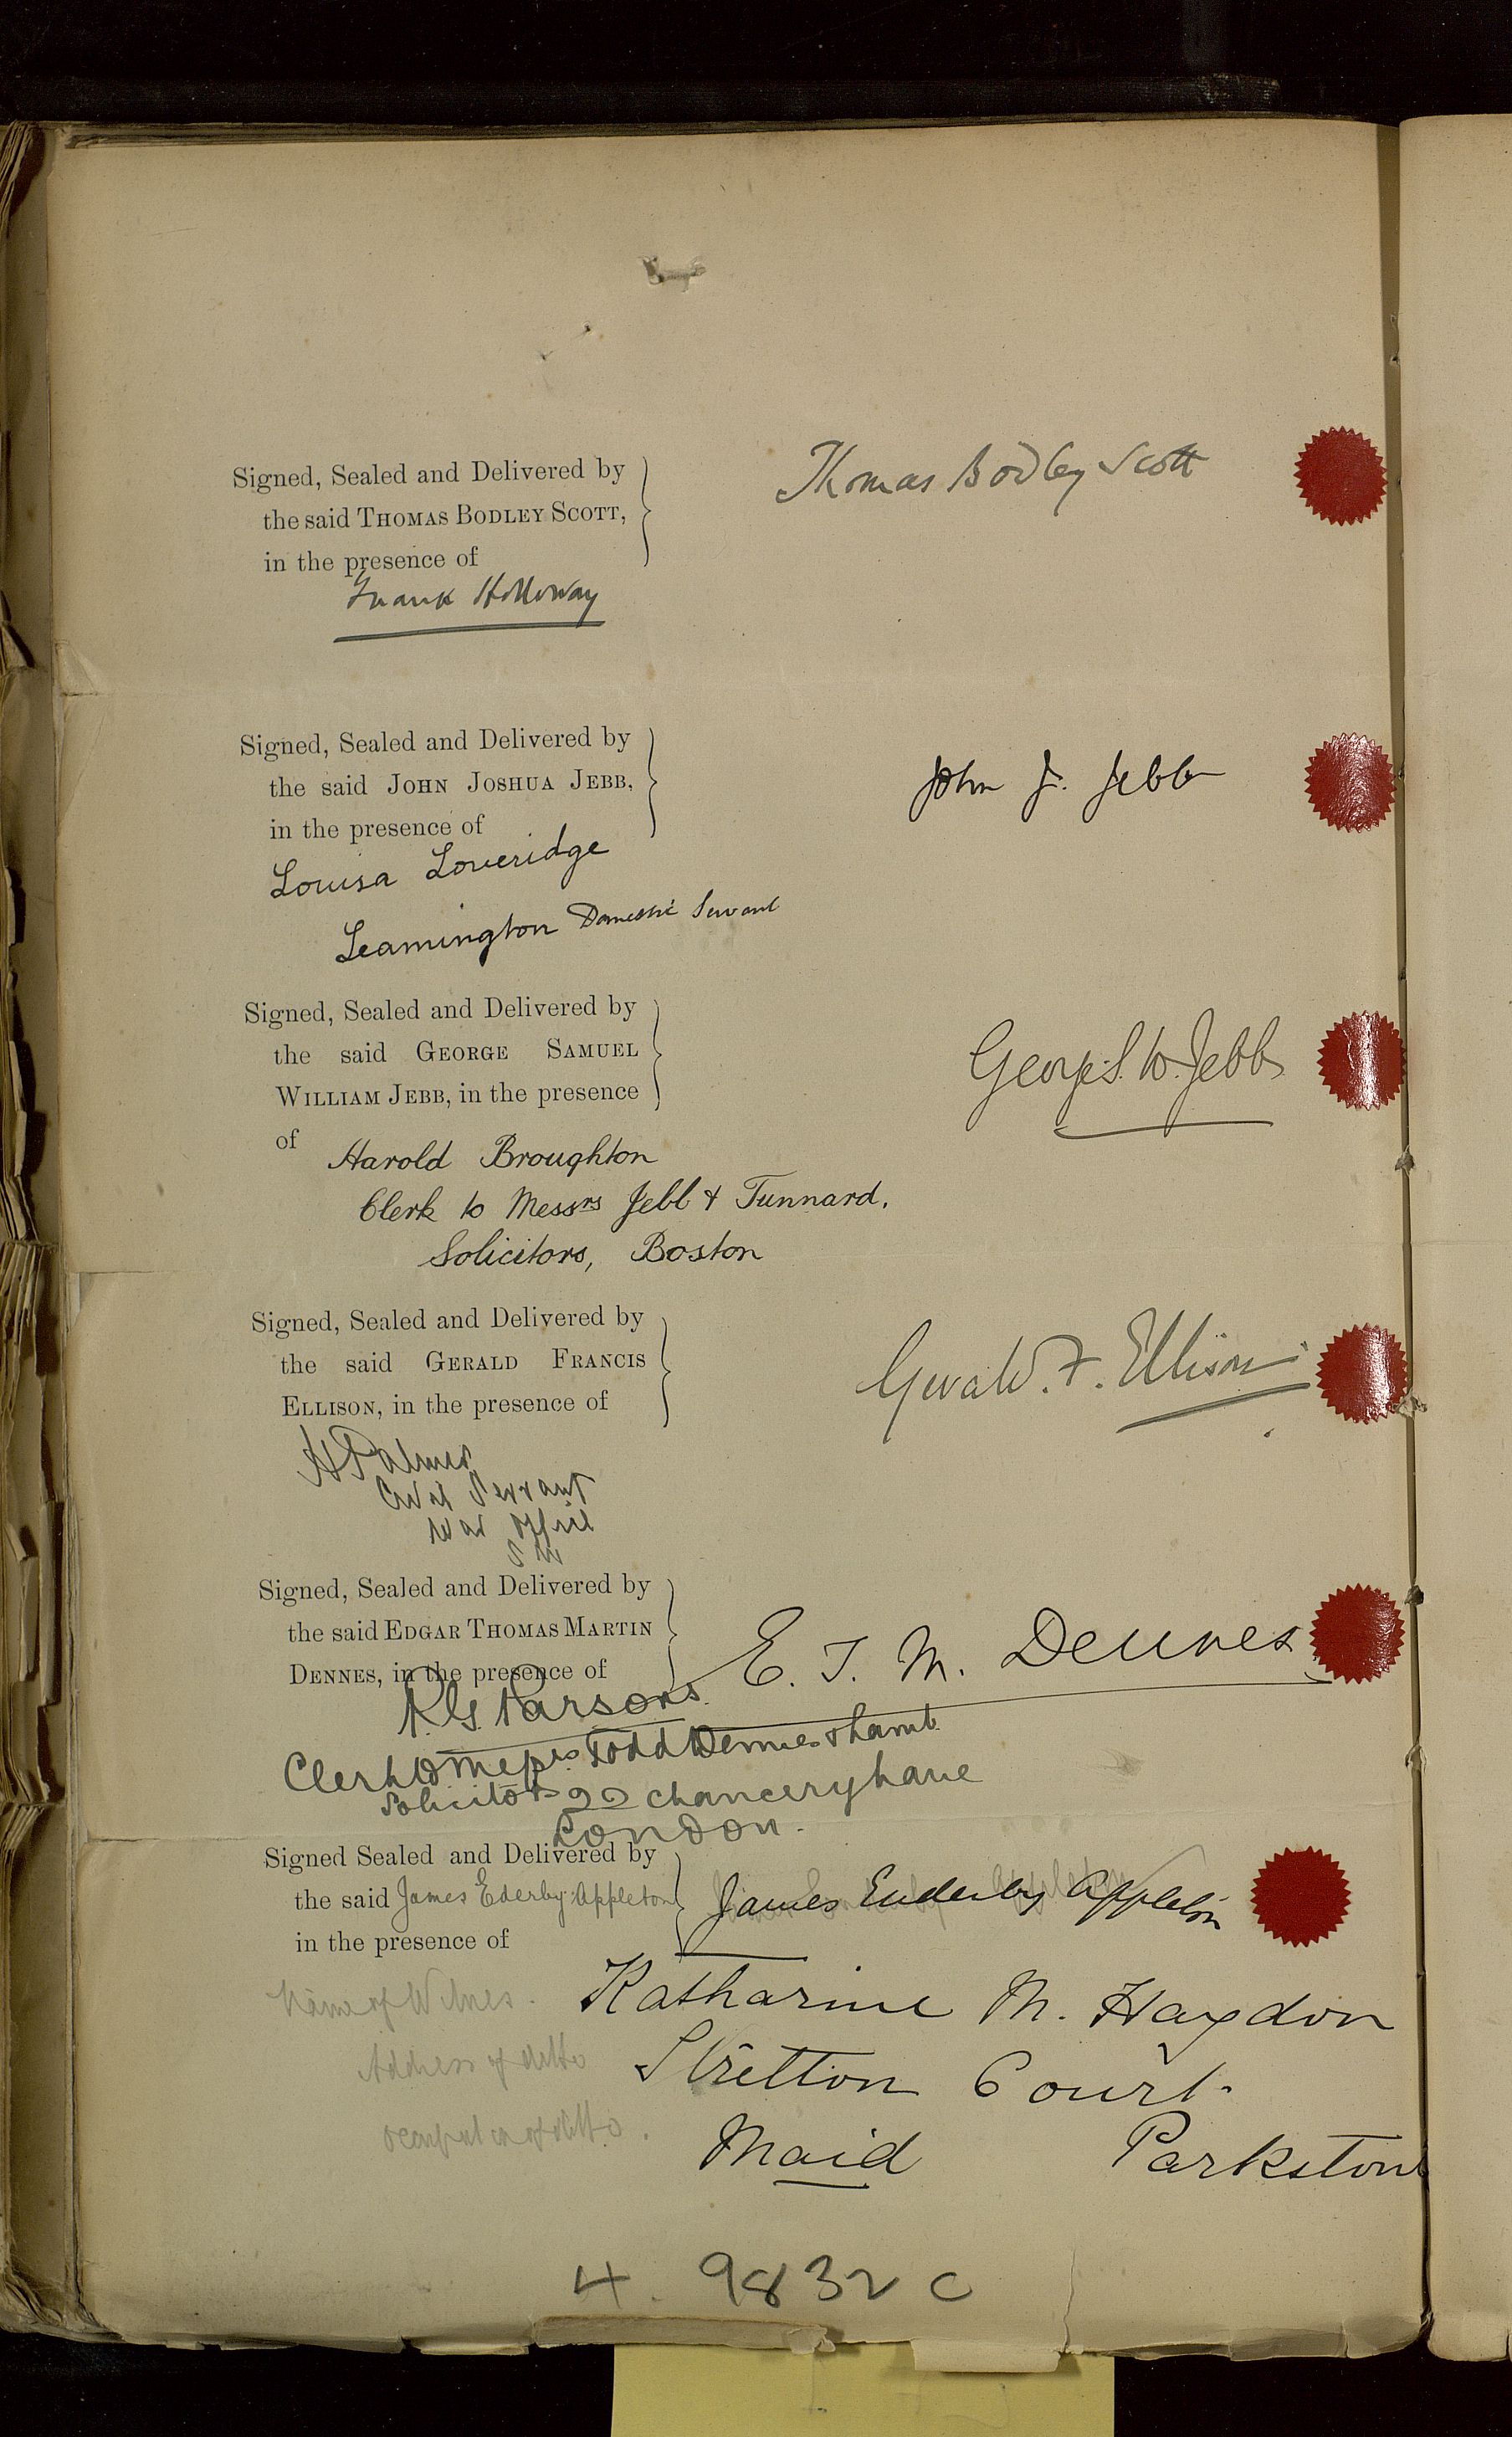 Signed, Sealed and Delivered by
the said THOMAS BODLEY SCOTT,
in the presence of
Thomas Bodley Scott
Frank Holloway
Signed, Sealed and Delivered by
the said JOHN JOSHUA JEBB,
in the presence of
John J. Jebb
Louisa Loveridge
Leamington Domestic Servant
Signed, Sealed and Delivered by
the said GEORGE SAMUEL
WILLIAM JEBB, in the presence
of
George S. W. Jebb
Harold Broughton
Clerk to Messrs Jebb & Tunnard,
Solicitors, Boston
Signed, Sealed and Delivered by
the said GERALD FRANCIS
ELLISON, in the presence of
Gerald. F. Ellison
H Palmer
Civil Servant
War Office
SW
Signed, Sealed and Delivered by
the said EDGAR THOMAS MARTIN
DENNES, in the presence of
E. T. M. Dennes
R. G. Parsons.
Clerk to Messrs Todd Dennes & Lamb
Solicitors 22 Chancery Lane
London.
Signed Sealed and Delivered by
the said James Ederby Appleton
in the presence of
James Enderby Appleton
Name of Witness. Katharine M. Haydon
Address of ditto Stretton Court.
Occupation of ditto. Maid Parkstone
4. 9832 C